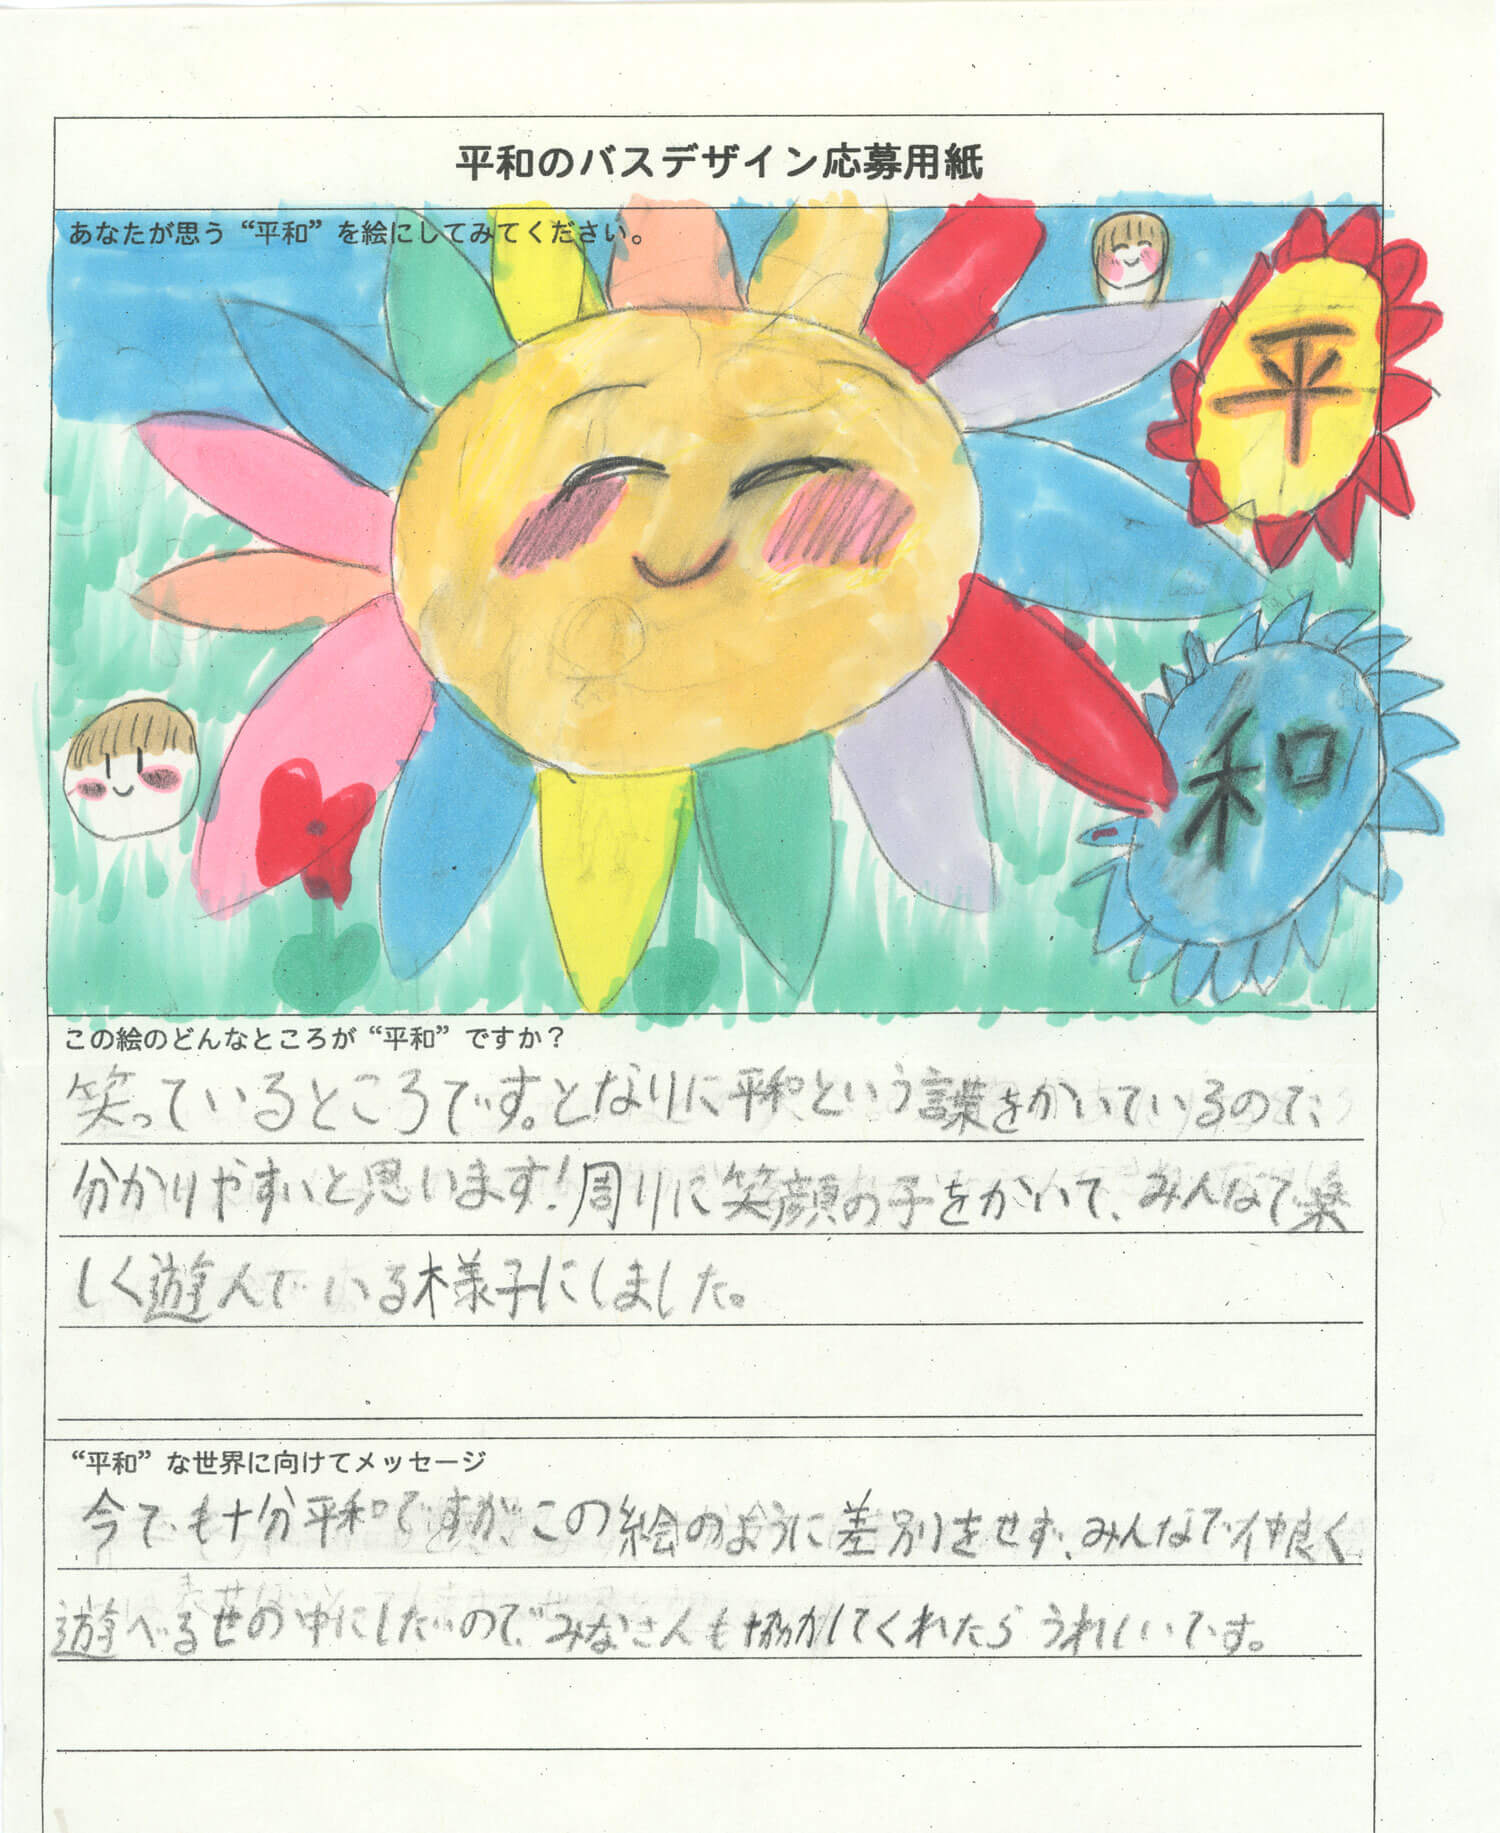 平和のバスデザイン応募用紙
あなたが思う“平和”を絵にしてみてください。
平
和
この絵のどんなところが“平和”ですか？
笑っているところです。となりに平和という言葉をかいているので、
分かりやすいと思います!周りに笑顔の子をかいて、みんなで楽
しく遊んでいる様子にしました。
“平和”な世界に向けてメッセージ
今でも十分平和ですが、この絵のように差別をせず、みんなで仲良く
遊べる世の中にしたいので、みなさんも協力してくれたらうれしいです。